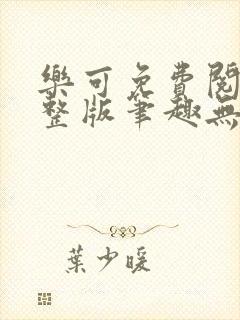 樂可免費閱
整版筆趣無
葉少暖